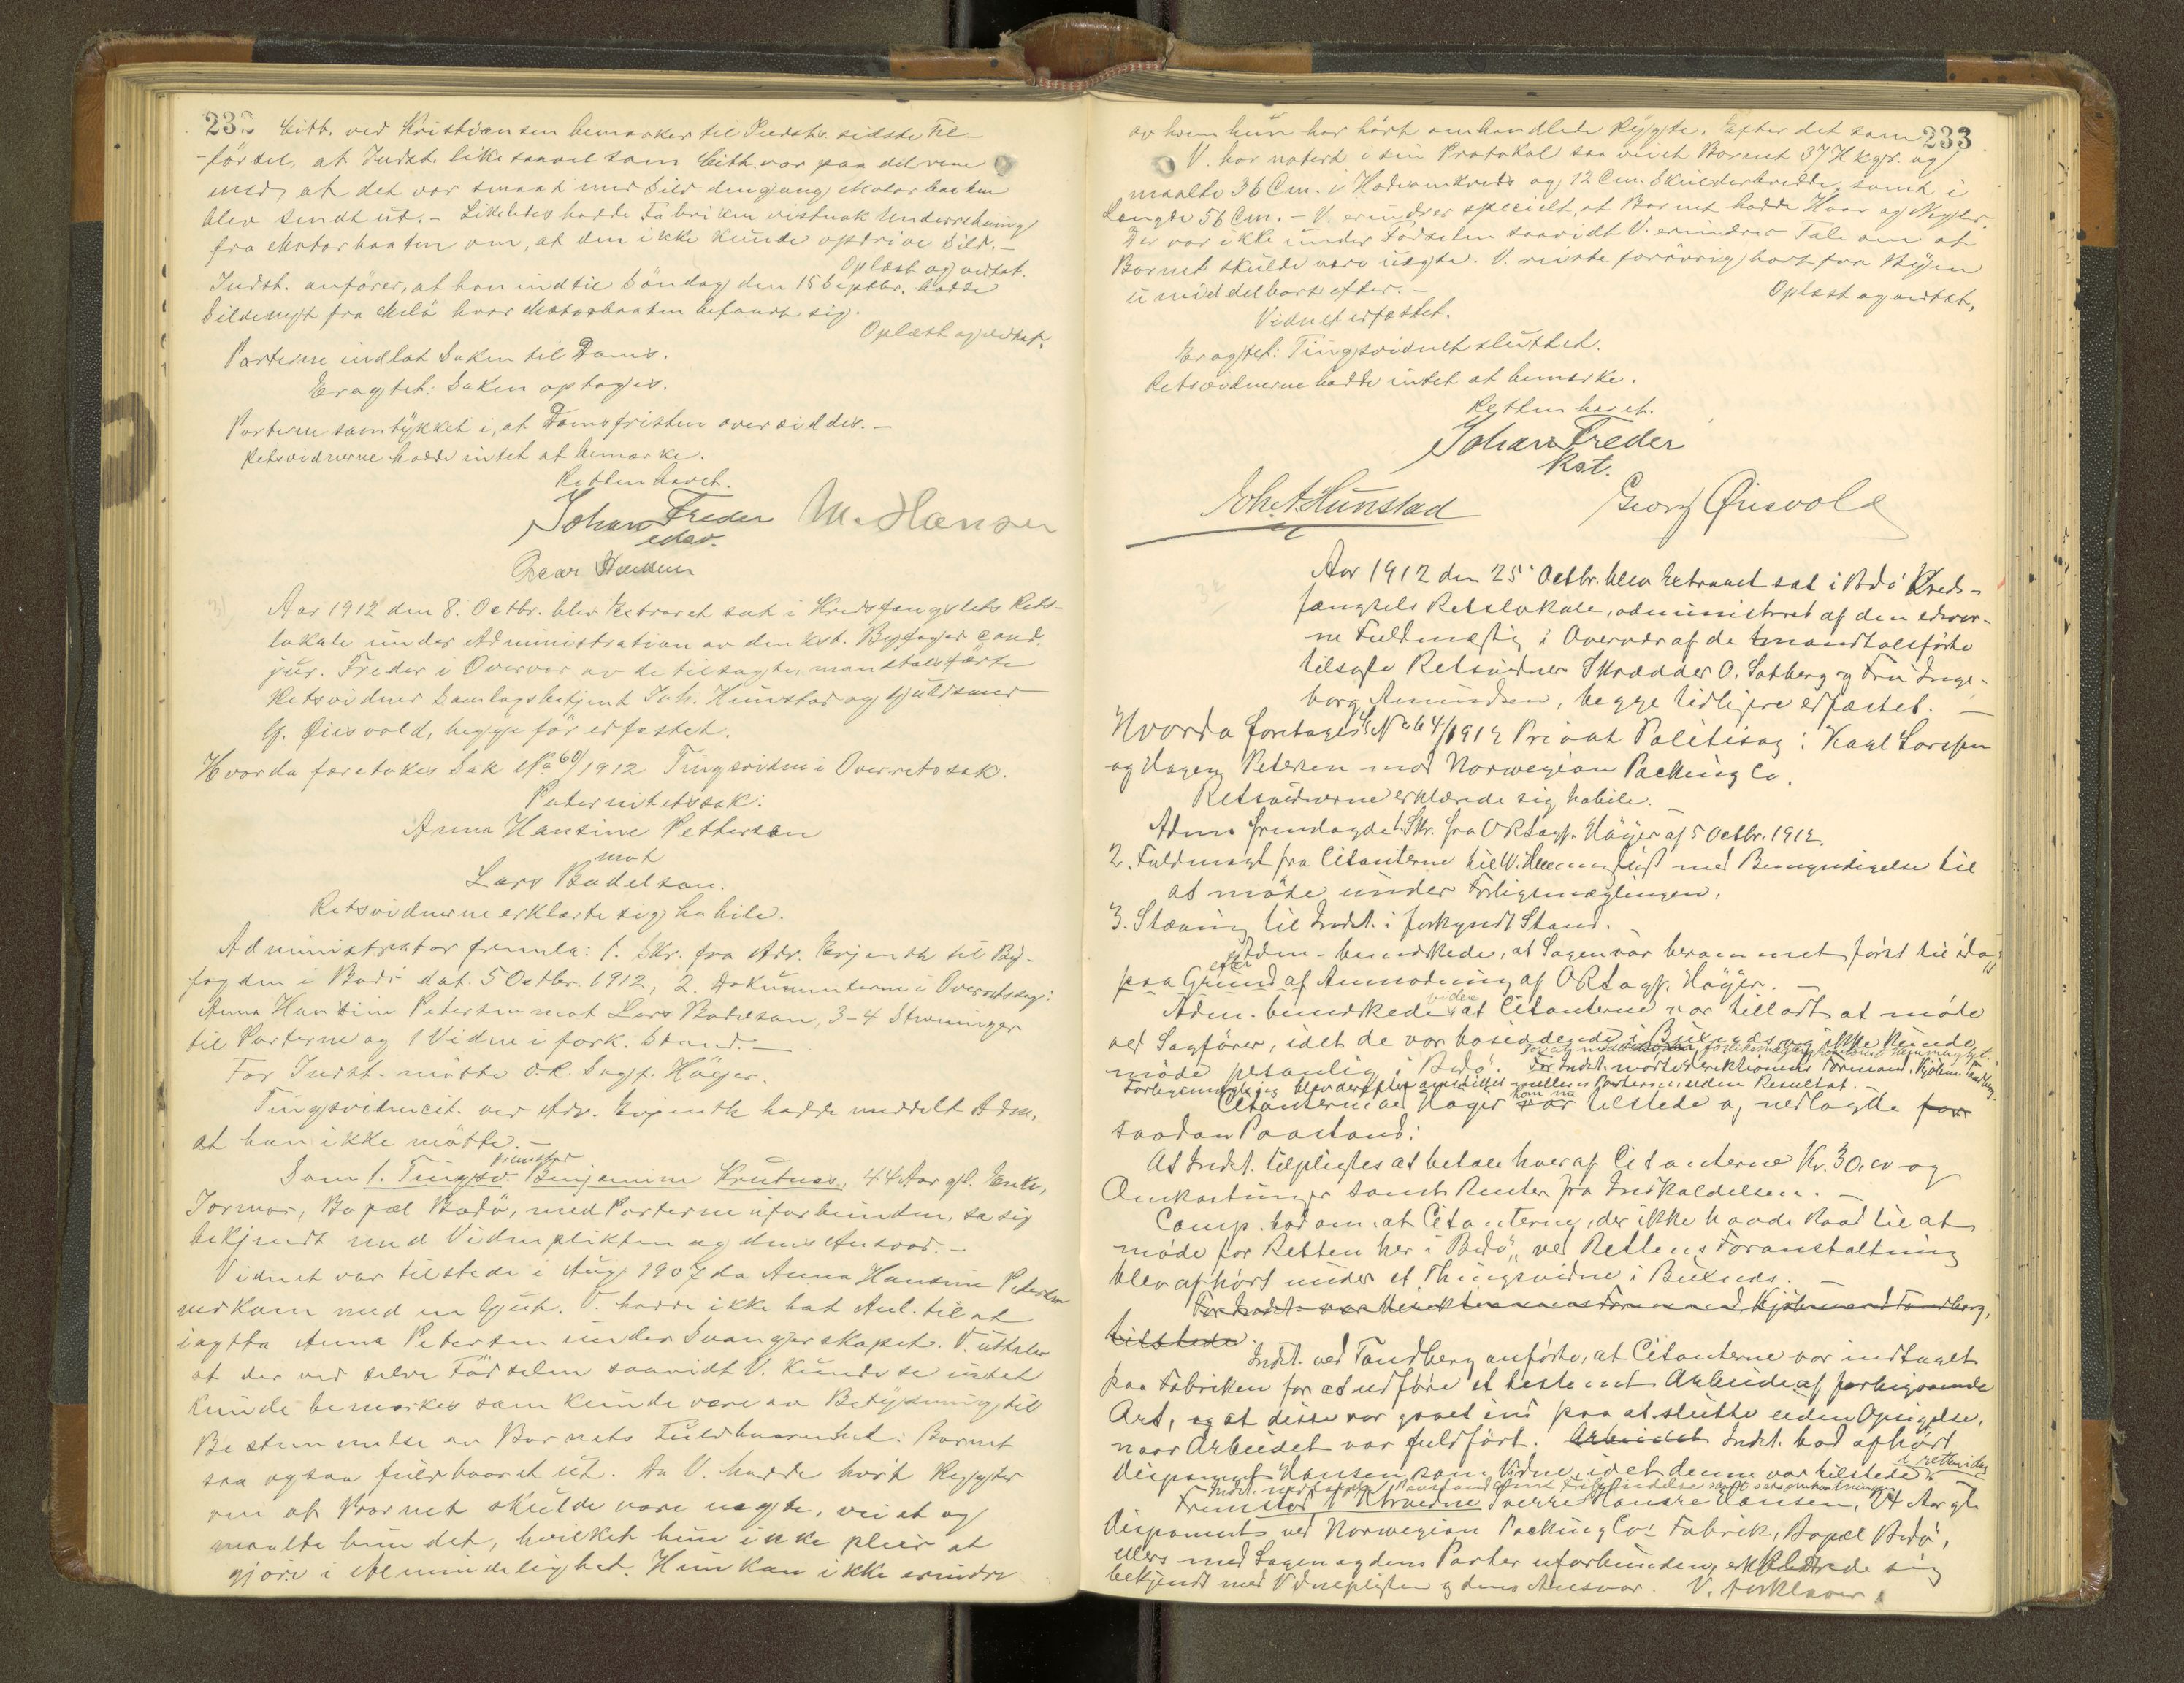 232 Citt. ved Kristiansen bemærker til Indst. sidste Til-
-førsel, at Indst. like saavel som Citt. var paa det rene
med, at det var smaat med Sild dengang Motorbaaten
blev sendt ut. - Likeledes hadde Fabriken vistnok Underretning
fra Motorbaaten om, at den ikke kunde opdrive Sild. -
Oplæst og vedtat.
Indst. anfører, at han indtil Søndag den 15 Septbr. hadde
Sildenyt fra Melö hvor Motorbaaten befandt sig.
Oplæst og vedtat.
Parterne indlot Saken til Doms.
Eragtet: Saken optages.
Parterne samtykket i, at Domsfristen oversiddes. -
Retsvidnerne hadde intet at bemærke.
Retten hævet.
Johan Freder M. Hansen
edsv.
Oscar Hansen
Aar 1912 den 8. Octbr. blev Extraret sat i Kredsfængslets Rets-
lokale under Administration av den kst. Byfoged cand.
jur. Freder i Overvær av de tilsagte, mandtalsførte
Retsvidner Samlagsbetjent Joh. Hunstad og Guldsmed
G. Øiesvold, begge før edfæstet.
Hvorda foretokes Sak No 60/1912 Tingsvidne i Overretssak.
Paternitetssak:
Anna Hansine Pettersen
mot
Lars Bodelsen.
Retsvidnerne erklærte sig habile.
Administrator fremla: 1. Skr. fra Adv. Erjenth til By-
fogden i Bodö dat. 5 Octbr. 1912, 2. Dokumenterne i Overretssag:
Anna Hansine Petersen mot Lars Bodelsen, 3-4 Stevninger
til Parterne og 1 Vidne i fork. Stand. -
For Indst. møtte O.R. Sagf. Höyer.
Tingsvidnecit. ved Adv. Erjenth hadde meddelt Adm.
at han ikke møtte. -
fremstod
Som 1. Tingsv. Benjamine Krutnes, 44 Aar gl. Enke,
Jormor, Bopæl Bodö, med Parterne uforbunden, sa sig
bekjendt med Vidneplikten og dens Ansvar. -
Vidnet var tilstede i Aug. 1907 da Anna Hansine Petersen
nedkom med en Gut. V. hadde ikke hat Anl. til at
iagtta Anna Petersen under Svangerskapet. V. uttaler
at der ved selve Födselen saavidt V. kunde se intet
kunde bemærkes som kunde være av Betydning til
Bestemmelse av Barnets Fuldbaarenhet: Barnet
saa ogsaa fuldbaaret ut. Da V. hadde hört Rygter
om at Barnet skulde være uegte, veiet og
maalte hun det, hvilket hun ikke pleier at
gjöre i Almindelighet. Hun kan ikke erindre
233
av hvem hun har hört omhandlede Rygte. Efter det som
V. har notert i sin Protokol saa veiet Barnet 37 H kgr. og
maalte 36 Cm. i Hodeomkreds og 12 Cm. Skulderbredde, samt i
Længde 56 Cm. - V. erindrer specielt, at Barnet hadde Haar og Negler.
Der var ikke under Fødselen saavidt V. erindrer Tale om at
Barnet skulde være uegte. V. reiste forövrig bort fra Byen
umiddelbart efter. -
Oplæst og vedtat.
Vidnet edfæstet.
Eragtet: Tingsvidnet sluttet.
Retsvidnerne hadde intet at bemærke.
Retten hævet.
Johan Freder
kst.
Joh. A. Hunstad Georg Øiesvold
Aar 1912 den 25' Octbr. blev Extraret sat i Bodö Kreds-
fængsels Retslokale, administreret af den edsvor-
ne Fuldmægtig i Overvær af de mandtalsførte
tilsagte Retsvidner Skrædder O. Solberg og Fru Inge-
borg Amundsen, begge tidligere edfæstet. -
Hvorda foretages S. No 64/1912 Privat Politisag: Karl Larssen
og Hagen Petersen mod Norwegian Packing Co.
Retsvidnerne erklærede sig habile. -
Adm. fremlagde 1. Skr. fra ORsagf. Höyer af 5 Octbr. 1912.
2. Fuldmagt fra Citanterne til W. Hemmingluft med Bemyndigelse til
at möde under Forligsmæglingen.
3. Stævning til Indst. i forkyndt Stand.
Adm. bemærkede, at Sagen var berammet først til idag
efter
paa Grund af Anmodning af ORsagf. Höyer. -
videre
Adm. bemærkede, at Citanterne var tilladt at møde
ved Sagfører, idet de var boseddende i Buksnes og ikke kunde
møde personlig i Bodö. For Indst. mødte direktionens Formand, Kjøbm. Tandberg.
Forligsmægling blev derefter anstillet mellem Parterne uden Resultat. -
kom nu
Citanterne ved Höyer var tilstede og nedlagde for
saadan Paastand:
At Indst. tilpligtes at betale hver af Citanterne Kr. 30,00 og
Omkostninger samt Renter fra Indkaldelsen. -
Comp. bad om, at Citanterne, der ikke havde Raad til at
møde for Retten her i Bodö, ved Rettens Foranstaltning
blev afhørt under et Thingsvidne i Buksnes. -
For Indst. var direktionens Formand Kjøbmand Tandberg,
tilstede
Indst. ved Tandberg anførte, at Citanterne var indtaget
paa Fabriken for at udføre et bestemt Arbeide af forbigaaende
Art, og at disse var gaaet ind paa at slutte uden Opsigelse,
naar Arbeidet var fuldført. Arbeidet Indst. bad afhørt
Disponent Hansen som Vidne, idet denne var tilstede i retten idag
Indst. nedlagde Paastand om Frifindelse samt saksomkostninger
Fremstod 1' Vidne Sverre Hanssen Hansen, 24 Aar gl.
Disponent ved Norwegian Packing Co's Fabrik, Bopæl Bodö,
ellers med Sagen og dens Parter uforbunden, erklærede sig
bekjendt med Vidnepligten og dens Ansvar. V. forklarer